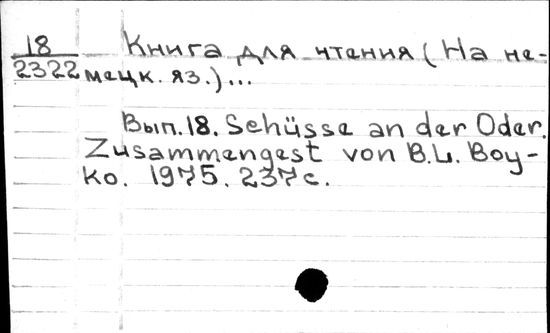 18 Книга для чтения (На не-
2322 мецк. яз.)...
Вып. 18. Schüsse an der Oder.
Zusammengest von B.L. Boy-
ko. 1975. 237с.